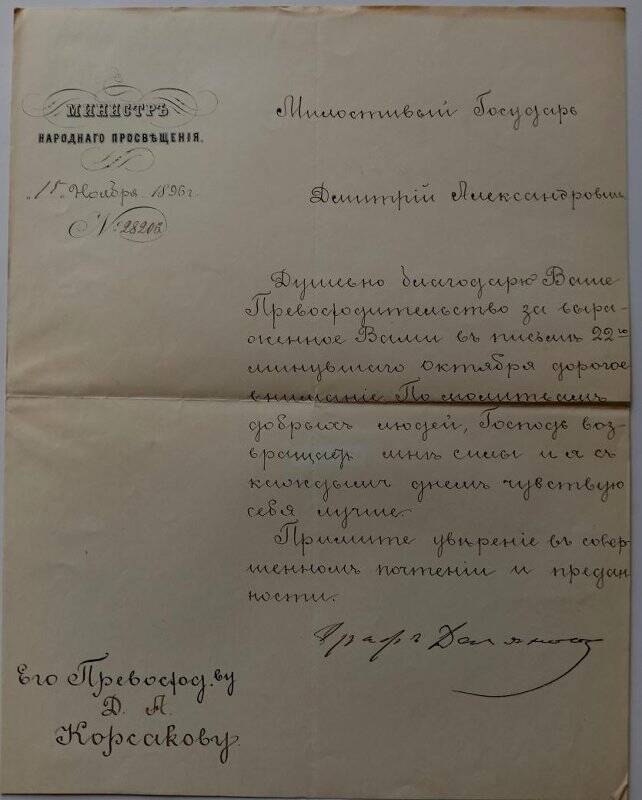 МИНИСТРЪ
НАРОДНАГО ПРОСВѢЩЕНІЯ.
„15„ Ноября 1896 г.
№ 28206
Милостивый Государь
Дмитрій Александровичъ
Душевно благодарю Ваше
Превосходительство за выра-
женное Вами въ письмѣ 22го
минувшаго октября дорогое
вниманіе. По молитвамъ
добрыхъ людей, Господь воз-
вращаетъ мнѣ силы и я съ
каждымъ днемъ чувствую
себя лучше.
Примите увѣреніе въ совер-
шенномъ почтеніи и предан-
ности.
Графъ Деляновъ
Его Превосход.ву
Д. А.
Корсакову.